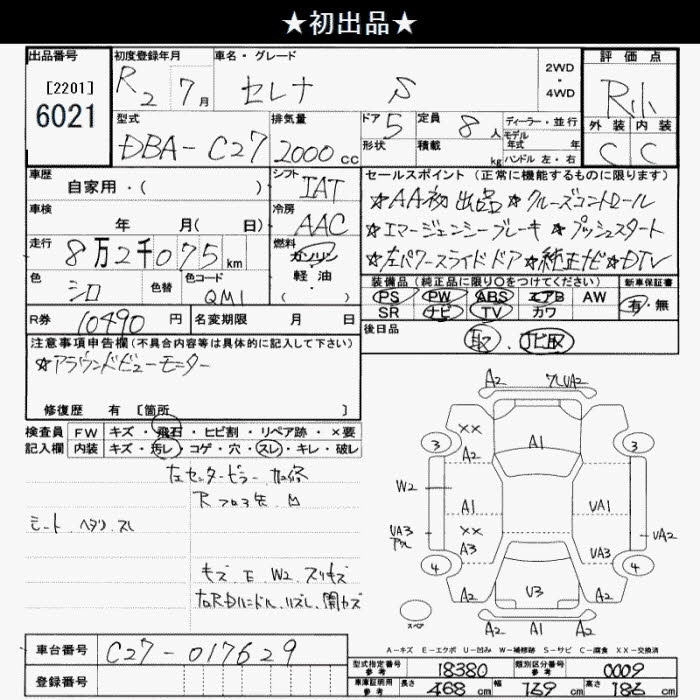 ★初出品★
出品番号 初度登録年月 車名・グレード 2WD・4WD 評価点
[2201]
6021
R2 7月 セレナ S R小
型式 排気量 ドア 定員 ディーラー・並行
DBA-C27 2000cc 5 8人 モデル年式 年
形状 積載 kg ハンドル 左・右
外装 内装
C C
車歴 自家用・( ) シフト IAT
セールスポイント(正常に機能するものに限ります)
★AA初出品 ★クルーズコントロール
★エマージェンシーブレーキ ★プッシュスタート
★左パワースライドドア ★純正ナビ ★DTV
車検 年 月( 日) 冷房 AAC
走行 8万2千075km 燃料 ガソリン・軽油 ( )
色 シロ 色替 色コード QM1
装備品(純正品に限り○をつけてください) 新車保証書
PS PW ABS エアB AW 有・無
SR ナビ TV カワ
R券 10490円 名変期限 月 日
後日品 取、ナビ取
注意事項申告欄(不具合内容等は具体的に記入して下さい)
★アラウンドビューモニター
修復歴 有 [箇所 ]
検査員記入欄 FW キズ・飛石・ヒビ割・リペア跡・×要
内装 キズ・汚レ・コゲ・穴・スレ・キレ・破レ
左センターピラー 加修
シート ヘタリ スレ
キズ E W2 スリキズ
A2 フレUA2
3 XX A2 A1 3
W2 A1 UA1
UA3 XX A3 UA3 UA2
4 A2 U3 A2 4
A2 A1 A2
スペア
A-キズ E-エクボ U-凹み W-補修跡 S-サビ C-腐食 XX-交換済
車台番号 C27-017629
登録番号
型式指定番号 参考 18380 類別区分番号 参考 0009
車庫証明用 参考 長さ 468cm 幅 169cm 高さ 186cm